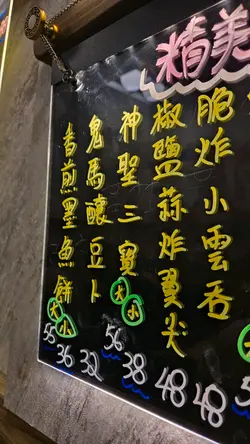 精美
脆炸小雲吞 48
椒鹽蒜炸翼尖 48
神聖三寶 大 56 小 38
鬼馬釀豆卜 32
香煎墨魚餅 大 55 小 36